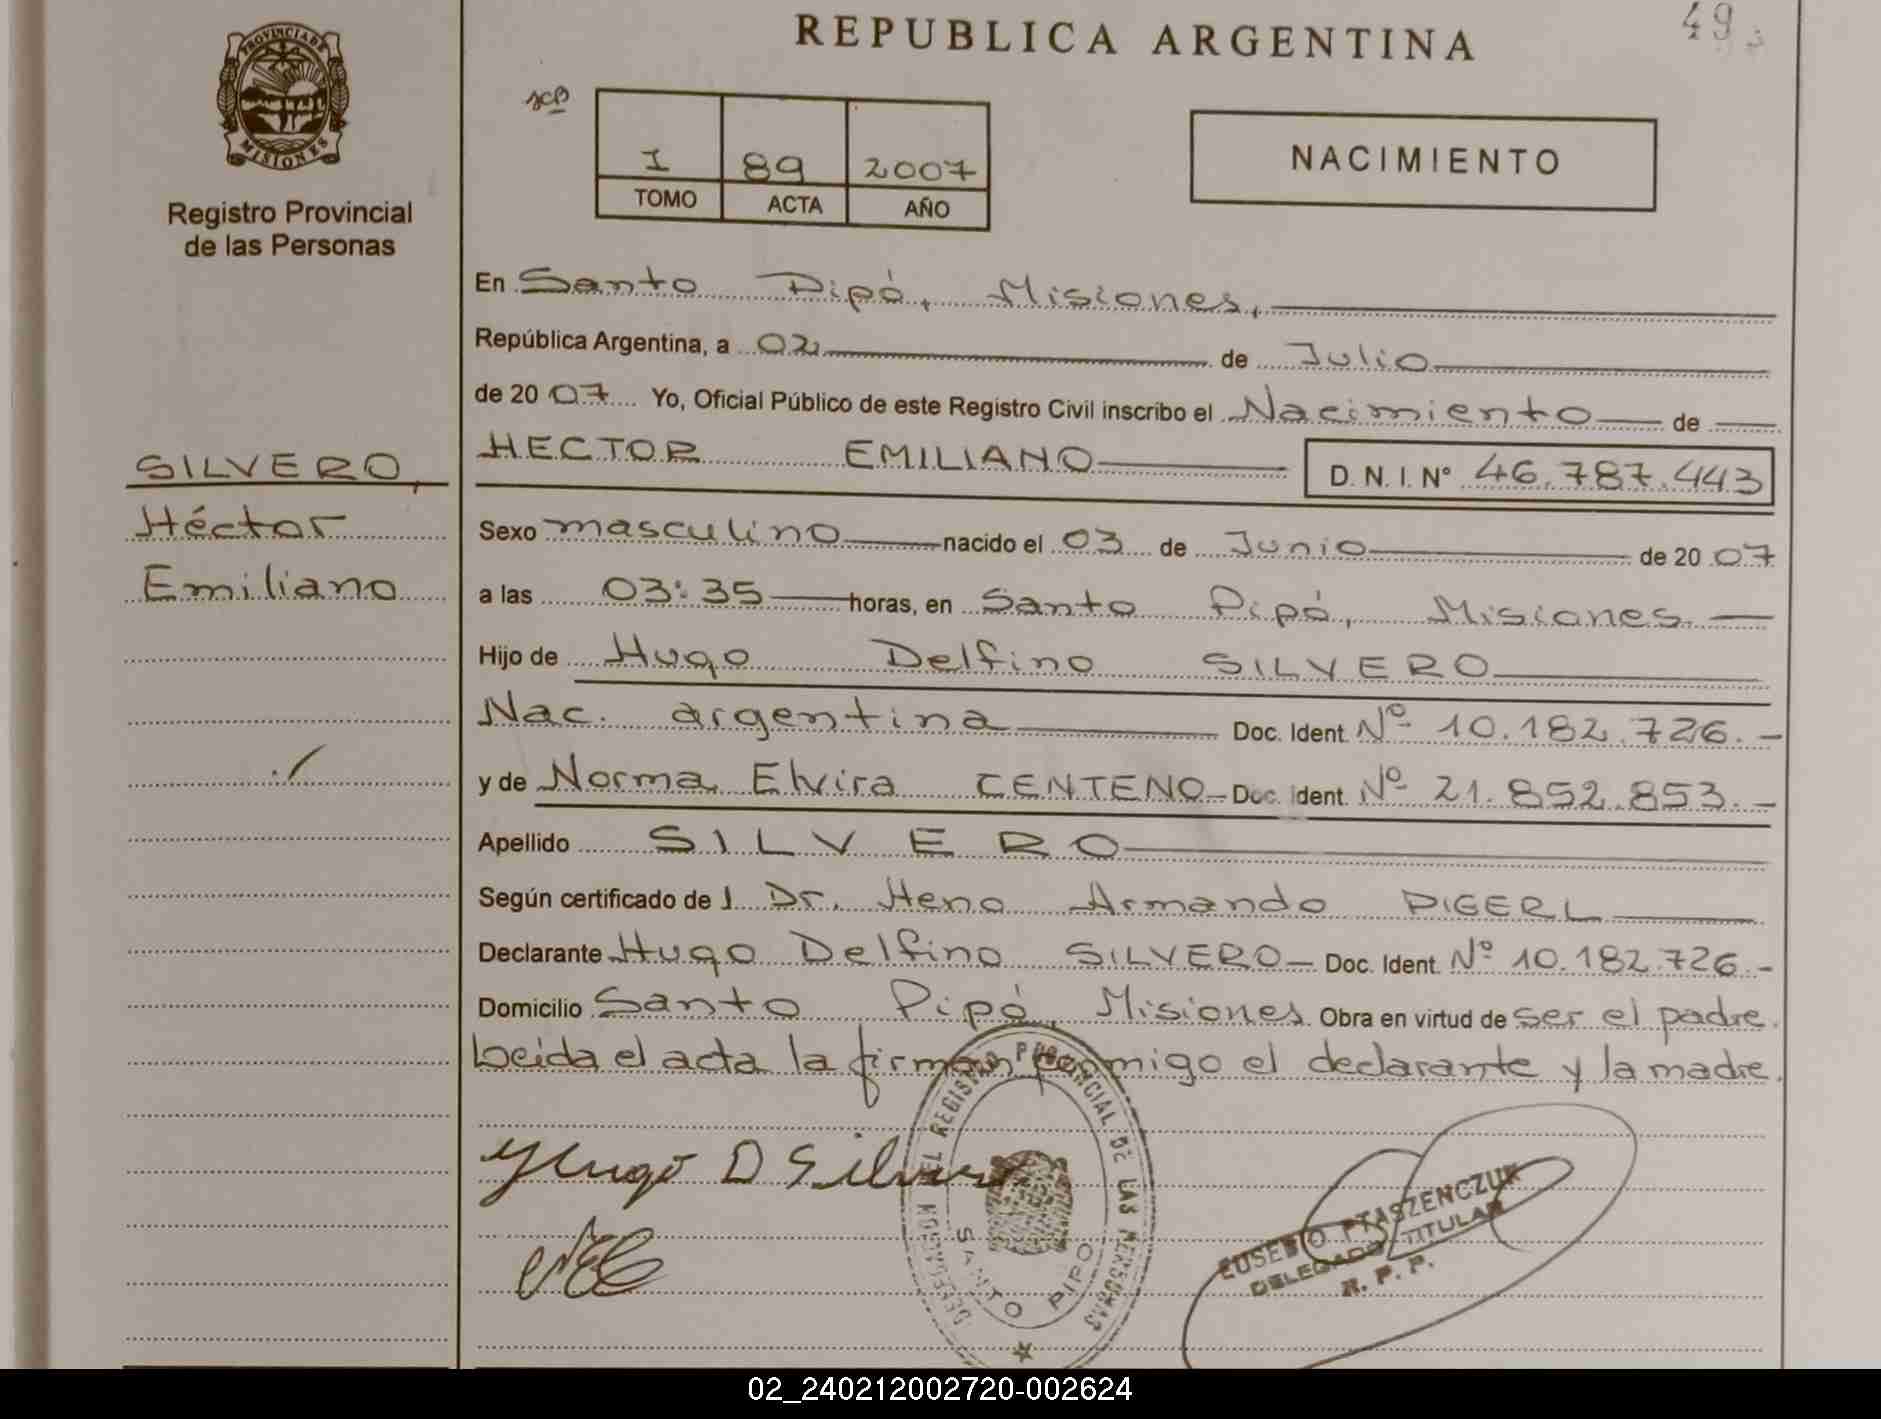 REPUBLICA ARGENTINA
49
PROVINCIA DE
MISIONES
Registro Provincial
de las Personas
I 89 2007
TOMO ACTA AÑO
NACIMIENTO
En Santo Pipó, Misiones,
República Argentina, a 02 de Julio
de 20 07 Yo, Oficial Público de este Registro Civil inscribo el Nacimiento de
HECTOR EMILIANO D. N. I. Nº 46.787.443
SILVERO,
Héctor
Emiliano
Sexo masculino nacido el 03 de Junio de 20 07
a las 03:35 horas, en Santo Pipó, Misiones.
Hijo de Hugo Delfino SILVERO
Nac. argentina Doc. Ident. Nº 10.182.726.-
y de Norma Elvira CENTENO - Doc. Ident. Nº 21.852.853.-
Apellido SILVERO
Según certificado de l Dr. Heno Armando PIGERL
Declarante Hugo Delfino SILVERO - Doc. Ident. Nº 10.182.726.-
Domicilio Santo Pipó, Misiones. Obra en virtud de ser el padre.
Leida el acta la firman conmigo el declarante y la madre.
Hugo D Silvero
NEC
DELEGACION DEL REGISTRO PROVINCIAL DE LAS PERSONAS
SANTO PIPO
EUSEBIO PTASZENCZUK
DELEGADO TITULAR
R. P. P.
02_240212002720-002624